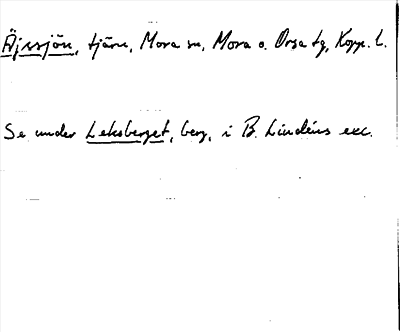 Äjssjön, tjärn, Mora sn, Mora o. Orsa tg, Kopp. l.
Se under Leksberget, berg, i B. Lindéns exc.